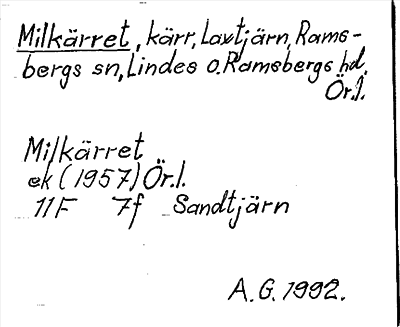 Milkärret, kärr, Laxtjärn, Rams-
bergs sn, Lindes o. Ramsbergs hd,
Ör.l.
Milkärret
ek (1957) Ör.l.
11F 7f Sandtjärn
A.G. 1992.